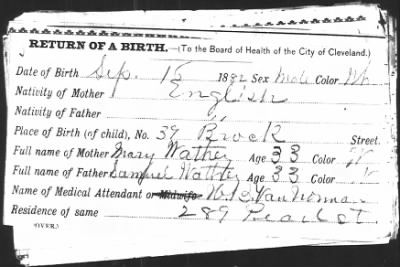 RETURN OF A BIRTH.—(To the Board of Health of the City of Cleveland.)
Date of Birth Sep. 15 1882 Sex Male Color Wh
Nativity of Mother English
Nativity of Father "
Place of Birth (of child), No. 39 Brock Street.
Full name of Mother Mary Wathey Age 33 Color W
Full name of Father Samuel Wathey Age 33 Color
Name of Medical Attendant or Midwife Van Norman
Residence of same 289 Pearl st.
(OVER.)